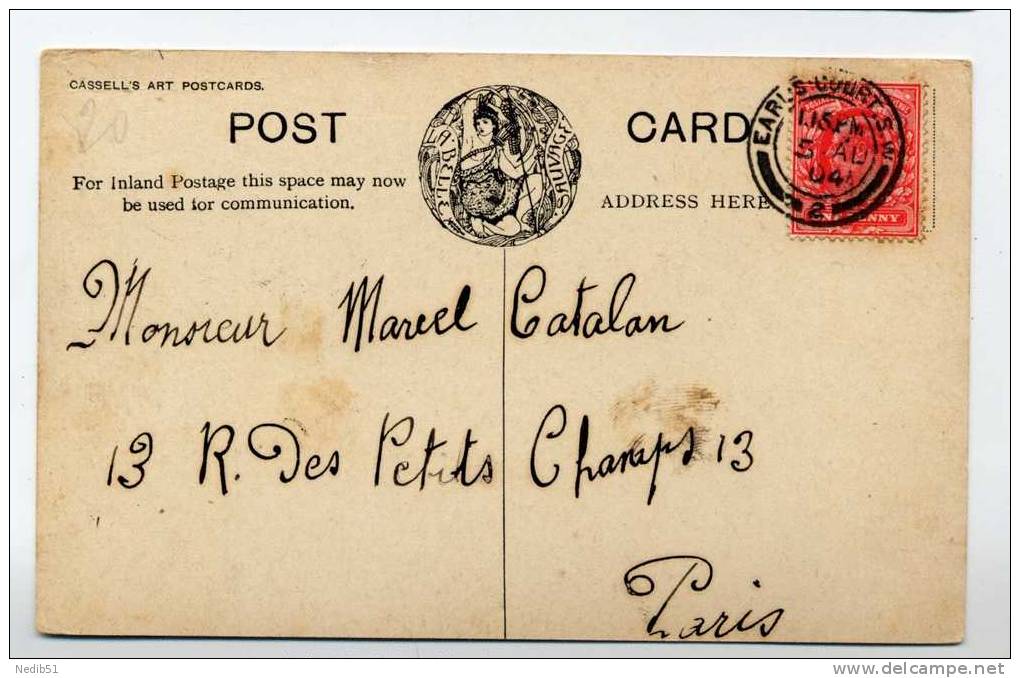 CASSELL'S ART POSTCARDS.
20
POST CARD
LA BELLE SAUVAGE
For Inland Postage this space may now
be used for communication.
ADDRESS HERE
EARL'S COURT. S.W.
1.15 PM
5 AU
04
2
PENNY
Monsieur Marcel Catalan
13 R. Des Petits Champs 13
Paris
Nedib51
delcampe.net